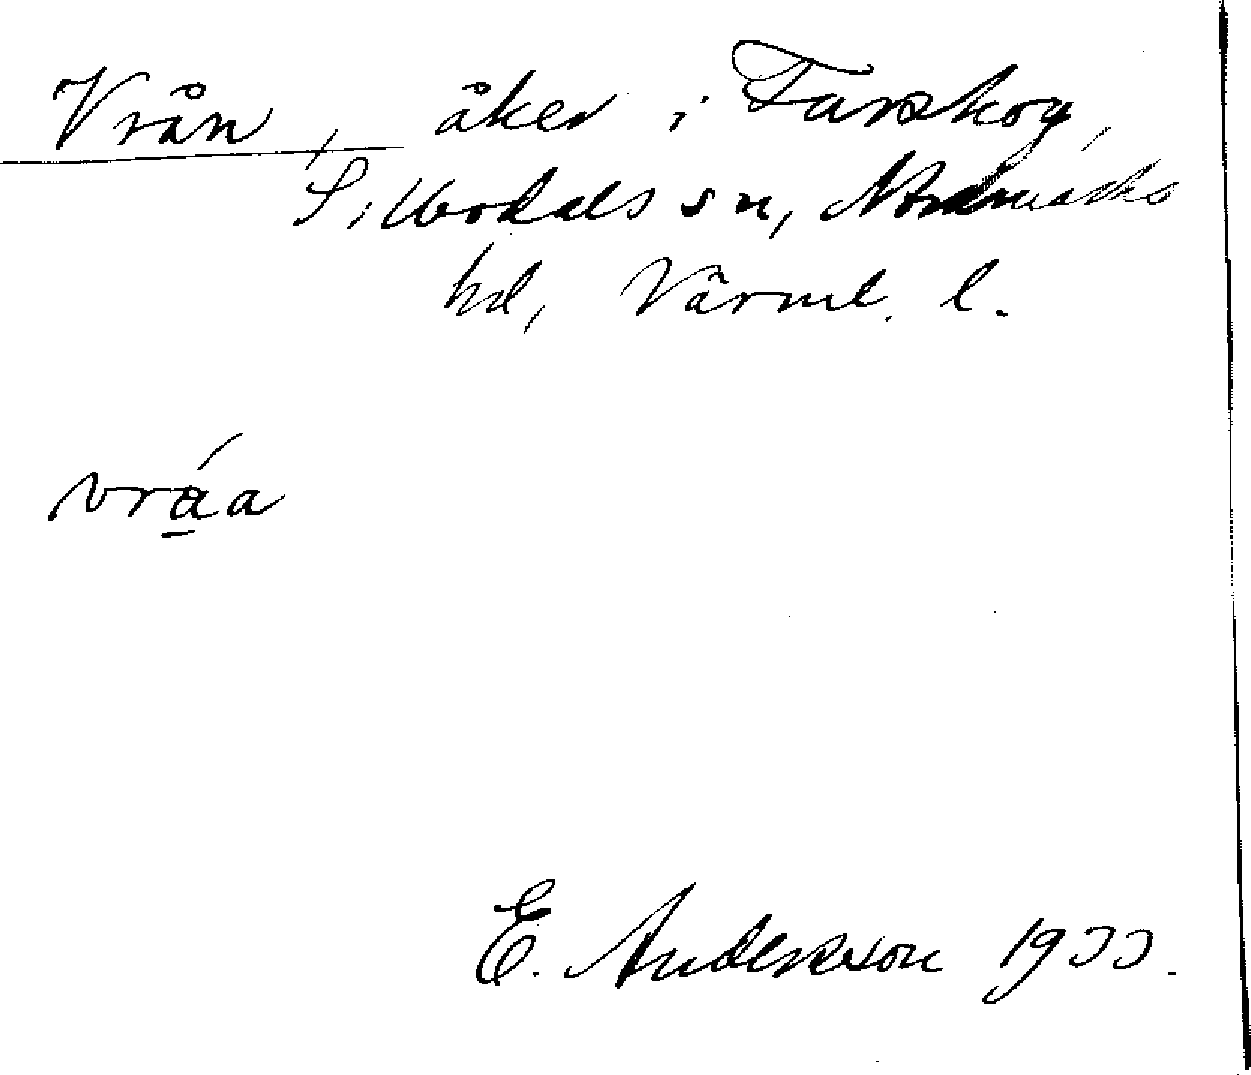 Vrån, åker i Tarskog,
Sillbodals sn, Nordmarks
hd, Värml. l.
vráa
E. Andersson 1933.